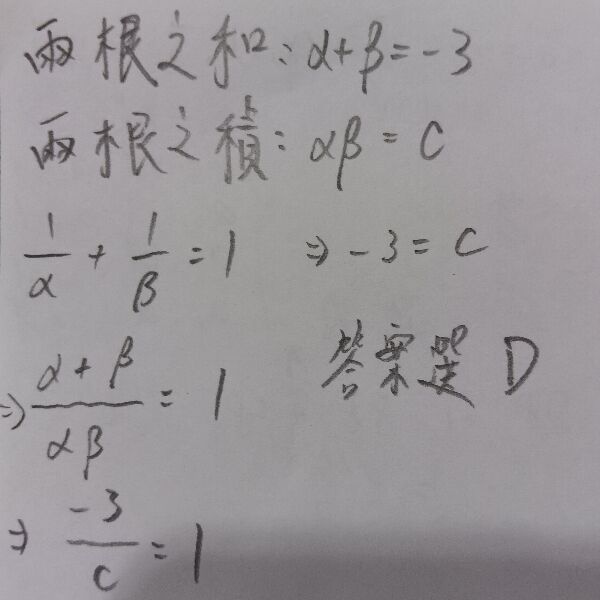 兩根之和：α+β=-3
兩根之積：αβ=c
1/α + 1/β = 1 ⇒ -3 = c
⇒ (α+β)/(αβ) = 1
答案選 D
⇒ -3/c = 1